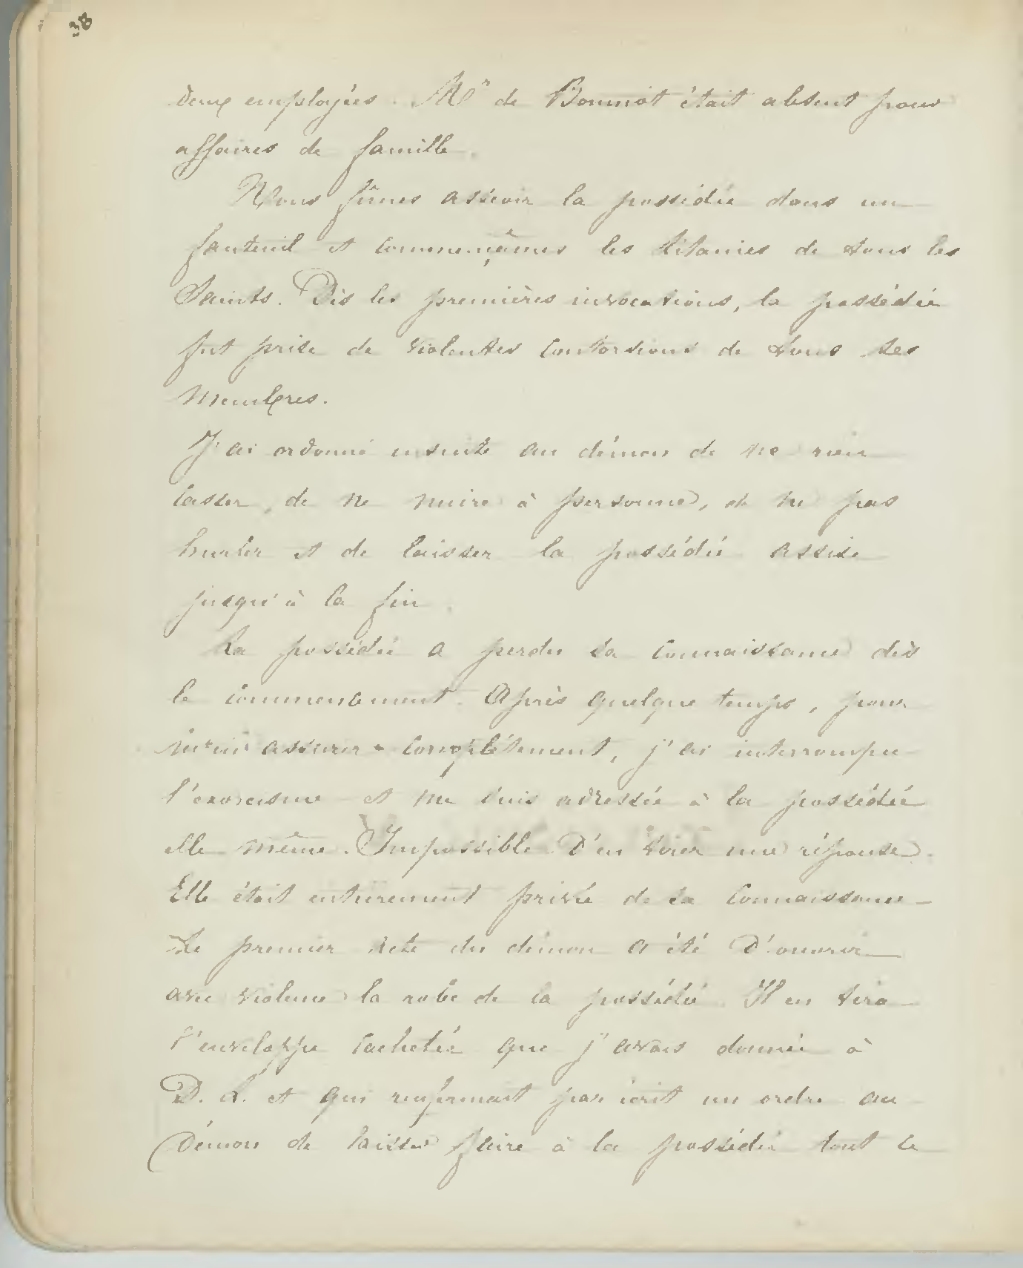 38
deux employées. Mr de Bonniot était absent pour
affaires de famille.
Nous fîmes asseoir la possédée dans un
fauteuil et commençâmes les litanies de tous les
Saints. Dès les premières invocations, la possédée
fut prise de violentes contorsions de tous ses
membres.
J'ai ordonné ensuite au démon de ne rien
casser, de ne nuire à personne, de ne pas
hurler et de laisser la possédée assise
jusqu'à la fin.
La possédée a perdu sa connaissance dès
le commencement. Après quelque temps, pour
m'en assurer complètement, j'ai interrompu
l'exorcisme et me suis adressée à la possédée
elle même. Impossible d'en tirer une réponse.
Elle était entièrement privée de sa connaissance.
Le premier acte du démon a été d'ouvrir
avec violence la robe de la possédée. Il en tira
l'enveloppe cachetée que j'avais donnée à
D. L. et qui renfermait par écrit un ordre au
démon de laisser faire à la possédée tout ce